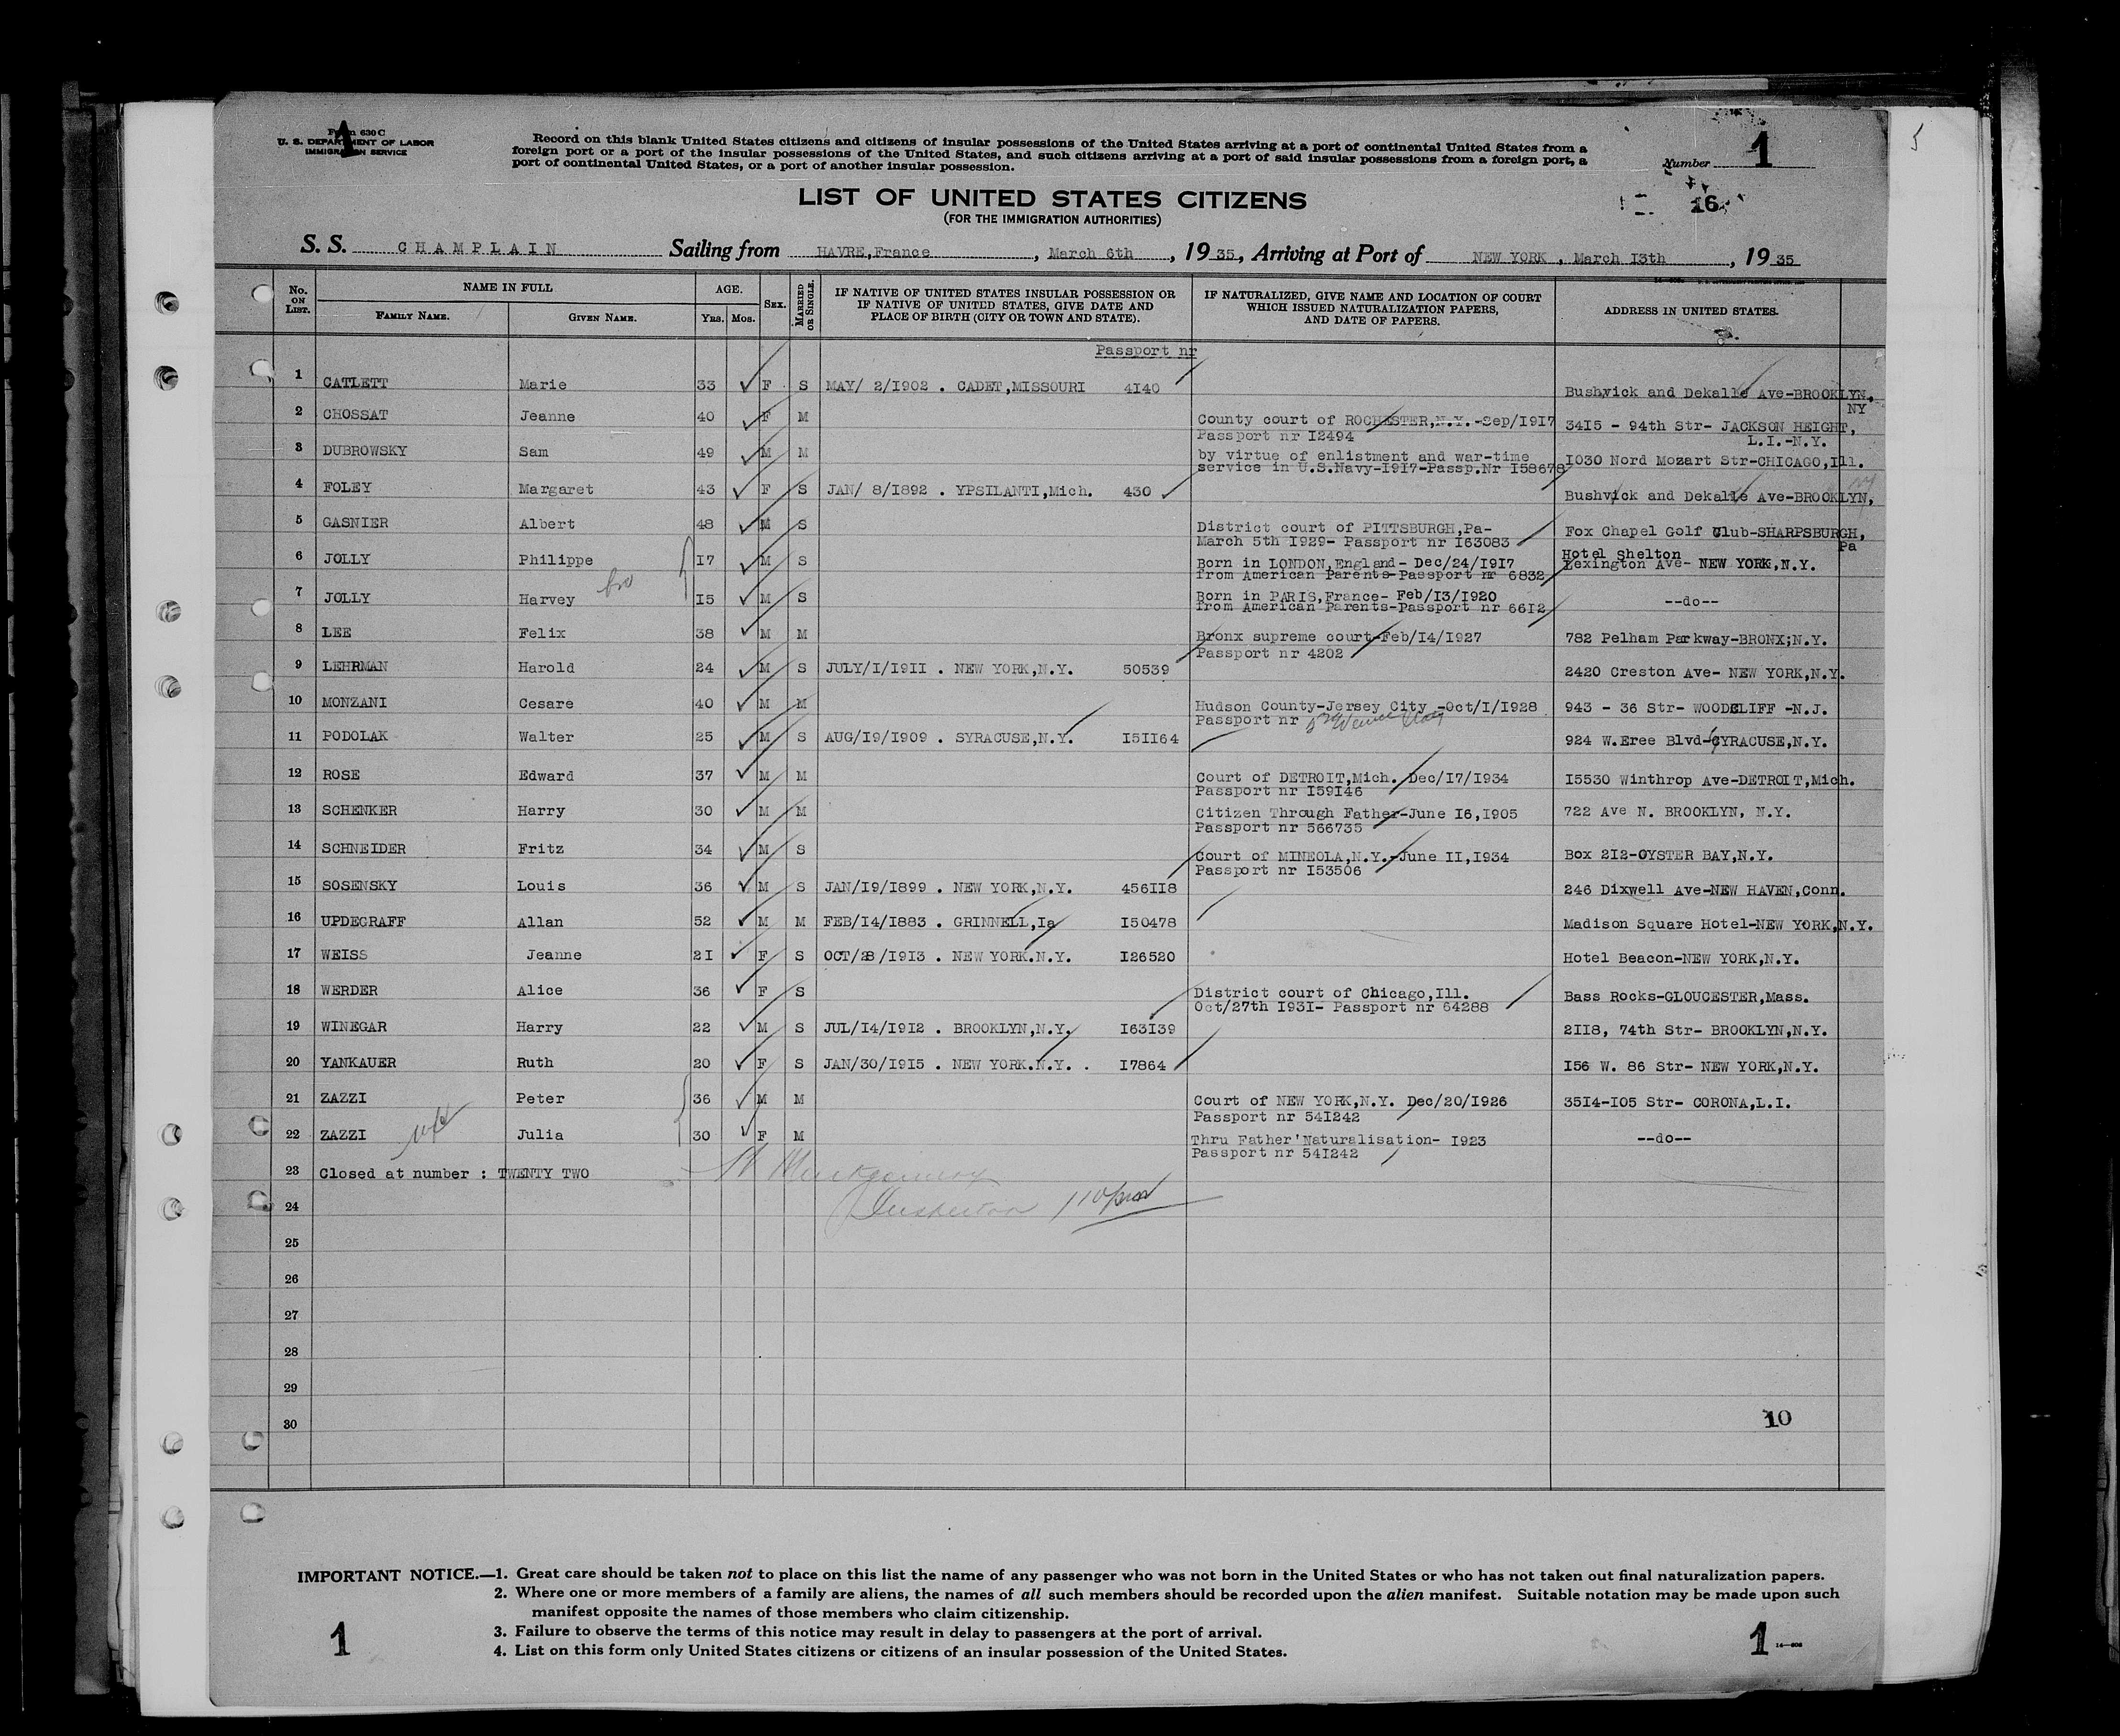 Form 630 C
U. S. DEPARTMENT OF LABOR
IMMIGRATION SERVICE
1
Record on this blank United States citizens and citizens of insular possessions of the United States arriving at a port of continental United States from a
foreign port or a port of the insular possessions of the United States, and such citizens arriving at a port of said insular possessions from a foreign port, a
port of continental United States, or a port of another insular possession.
Number 1
5
LIST OF UNITED STATES CITIZENS
(FOR THE IMMIGRATION AUTHORITIES)
16
S. S. CHAMPLAIN Sailing from HAVRE,France , March 6th , 19 35, Arriving at Port of NEW YORK , March I3th , 19 35
No. ON LIST. NAME IN FULL FAMILY NAME. GIVEN NAME. AGE. YRS. MOS. SEX. MARRIED OR SINGLE. IF NATIVE OF UNITED STATES INSULAR POSSESSION OR IF NATIVE OF UNITED STATES, GIVE DATE AND PLACE OF BIRTH (CITY OR TOWN AND STATE). IF NATURALIZED, GIVE NAME AND LOCATION OF COURT WHICH ISSUED NATURALIZATION PAPERS, AND DATE OF PAPERS. ADDRESS IN UNITED STATES.
Passport nr
1 CATLETT Marie 33 F S MAY/ 2/I902 . CADET,MISSOURI 4I40 Bushvick and Dekalle Ave-BROOKLYN, NY
2 CHOSSAT Jeanne 40 F M County court of ROCHESTER,N.Y.-Sep/I9I7 34I5 - 94th Str- JACKSON HEIGHT,
Passport nr I2494 L.I.-N.Y.
3 DUBROWSKY Sam 49 M M by virtue of enlistment and war-time I030 Nord Mozart Str-CHICAGO,Ill.
service in U.S.Navy-I9I7-Passp.Nr I58678
4 FOLEY Margaret 43 F S JAN/ 8/I892 . YPSILANTI,Mich. 430 Bushvick and Dekalle Ave-BROOKLYN, NY
5 GASNIER Albert 48 M S District court of PITTSBURGH,Pa- Fox Chapel Golf Club-SHARPSBURGH,
March 5th I929- Passport nr I63083 Pa
6 JOLLY Philippe I7 M S Born in LONDON,England- Dec/24/I9I7 Hotel Shelton
from American Parents-Passport nr 6832 Lexington Ave- NEW YORK,N.Y.
7 JOLLY Harvey bro I5 M S Born in PARIS,France- Feb/I3/I920 --do--
from American Parents-Passport nr 66I2
8 LEE Felix 38 M M Bronx supreme court-Feb/I4/I927 782 Pelham Parkway-BRONX;N.Y.
Passport nr 4202
9 LEHRMAN Harold 24 M S JULY/I/I9II . NEW YORK,N.Y. 50539 2420 Creston Ave- NEW YORK,N.Y.
10 MONZANI Cesare 40 M M Hudson County-Jersey City -Oct/I/I928 943 - 36 Str- WOODCLIFF -N.J.
Passport nr
11 PODOLAK Walter 25 M S AUG/I9/I909 . SYRACUSE,N.Y. I5II64 924 W.Eree Blvd-SYRACUSE,N.Y.
12 ROSE Edward 37 M M Court of DETROIT,Mich. Dec/I7/I934 I5530 Winthrop Ave-DETROIT,Mich.
Passport nr I59I46
13 SCHENKER Harry 30 M M Citizen Through Father-June I6,I905 722 Ave N. BROOKLYN, N.Y.
Passport nr 566735
14 SCHNEIDER Fritz 34 M S Court of MINEOLA,N.Y.-June II,I934 Box 2I2-OYSTER BAY,N.Y.
Passport nr I53506
15 SOSENSKY Louis 36 M S JAN/I9/I899 . NEW YORK,N.Y. 456II8 246 Dixwell Ave-NEW HAVEN,Conn.
16 UPDEGRAFF Allan 52 M M FEB/I4/I883 . GRINNELL,Ia I50478 Madison Square Hotel-NEW YORK,N.Y.
17 WEISS Jeanne 2I F S OCT/28/I9I3 . NEW YORK.N.Y. I26520 Hotel Beacon-NEW YORK,N.Y.
18 WERDER Alice 36 F S District court of Chicago,Ill. Bass Rocks-GLOUCESTER,Mass.
Oct/27th I93I- Passport nr 64288
19 WINEGAR Harry 22 M S JUL/I4/I9I2 . BROOKLYN,N.Y. I63I39 2II8, 74th Str- BROOKLYN,N.Y.
20 YANKAUER Ruth 20 F S JAN/30/I9I5 . NEW YORK.N.Y. . I7864 I56 W. 86 Str- NEW YORK,N.Y.
21 ZAZZI Peter 36 M M Court of NEW YORK,N.Y. Dec/20/I926 35I4-I05 Str- CORONA,L.I.
Passport nr 54I242
22 ZAZZI wife Julia 30 F M Thru Father'Naturalisation- I923 --do--
Passport nr 54I242
23 Closed at number : TWENTY TWO Montgomery
24 Inspector
25
26
27
28
29
30 10
IMPORTANT NOTICE.—1. Great care should be taken not to place on this list the name of any passenger who was not born in the United States or who has not taken out final naturalization papers.
2. Where one or more members of a family are aliens, the names of all such members should be recorded upon the alien manifest. Suitable notation may be made upon such
manifest opposite the names of those members who claim citizenship.
3. Failure to observe the terms of this notice may result in delay to passengers at the port of arrival.
4. List on this form only United States citizens or citizens of an insular possession of the United States.
1
1